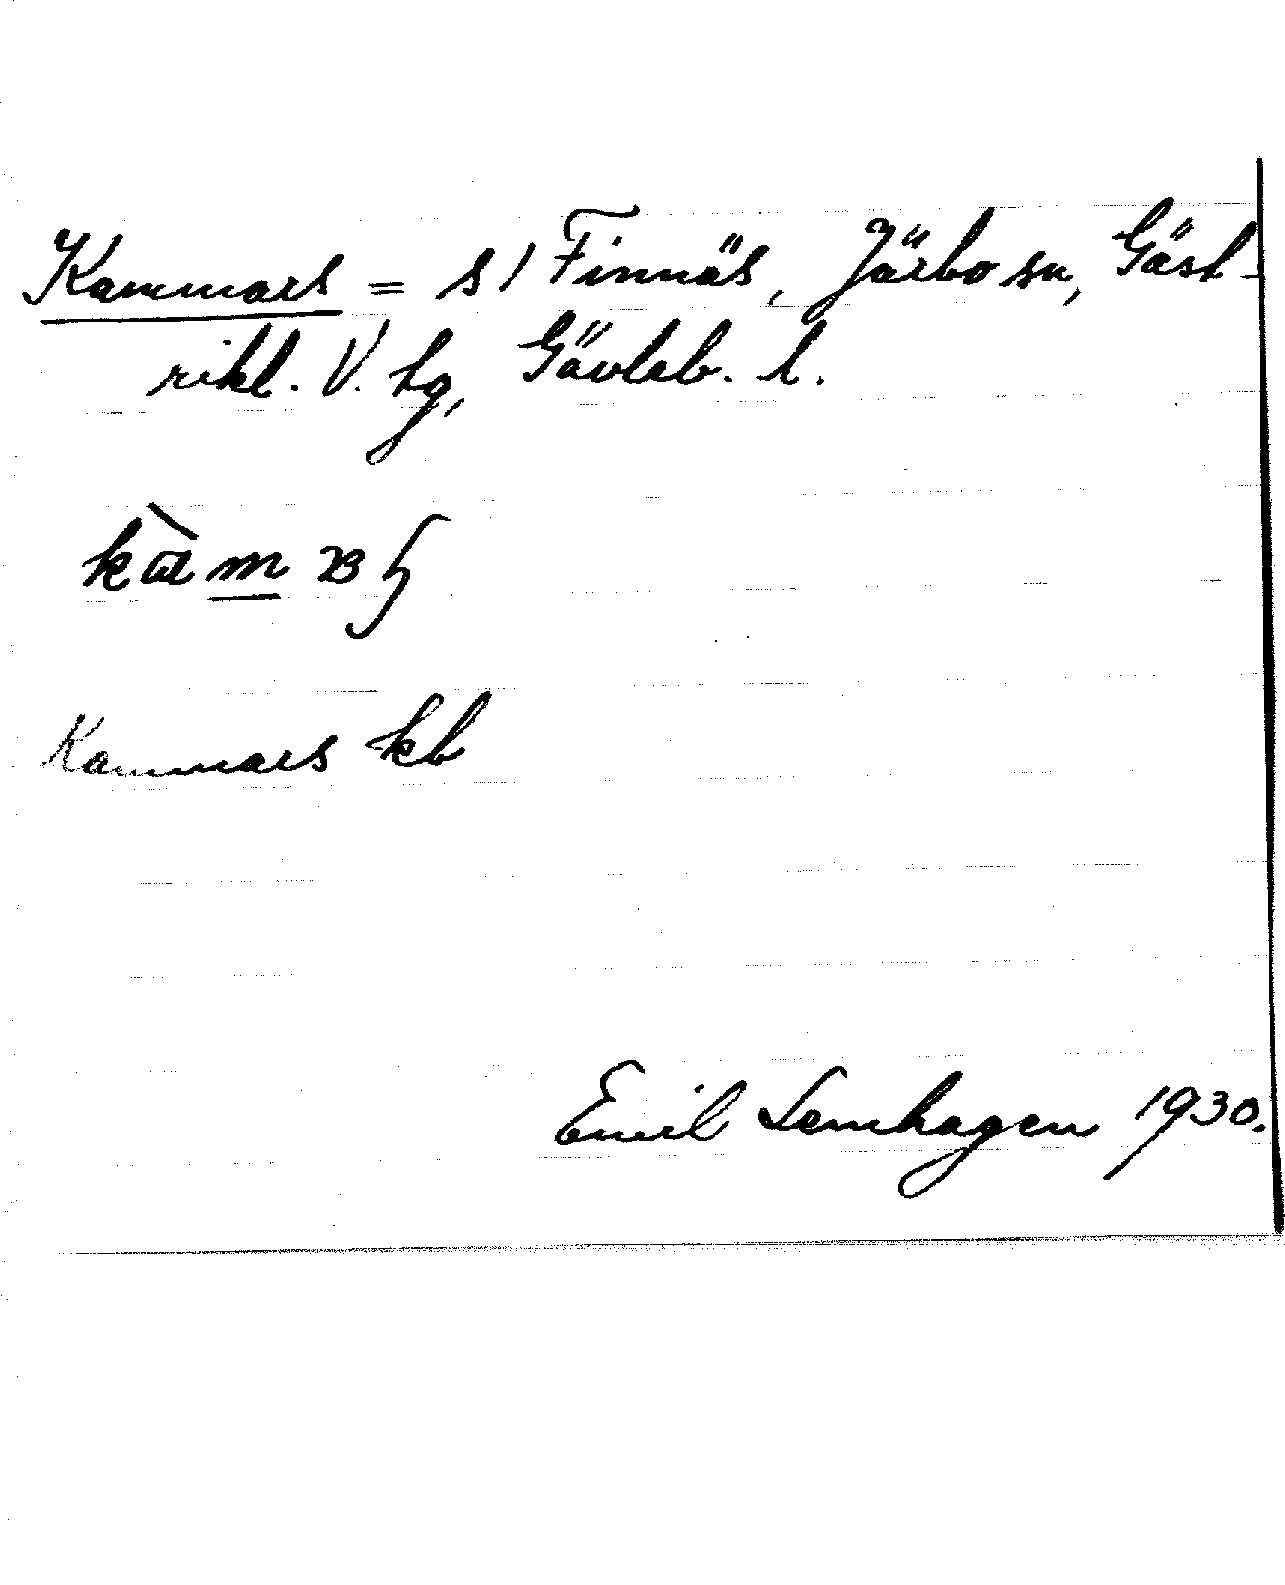 Kammars = s1 Finnäs, Järbo sn, Gäst-
rikl. V. hg, Gävleb. l.
Kammars kb
Emil Lemhagen 1930.